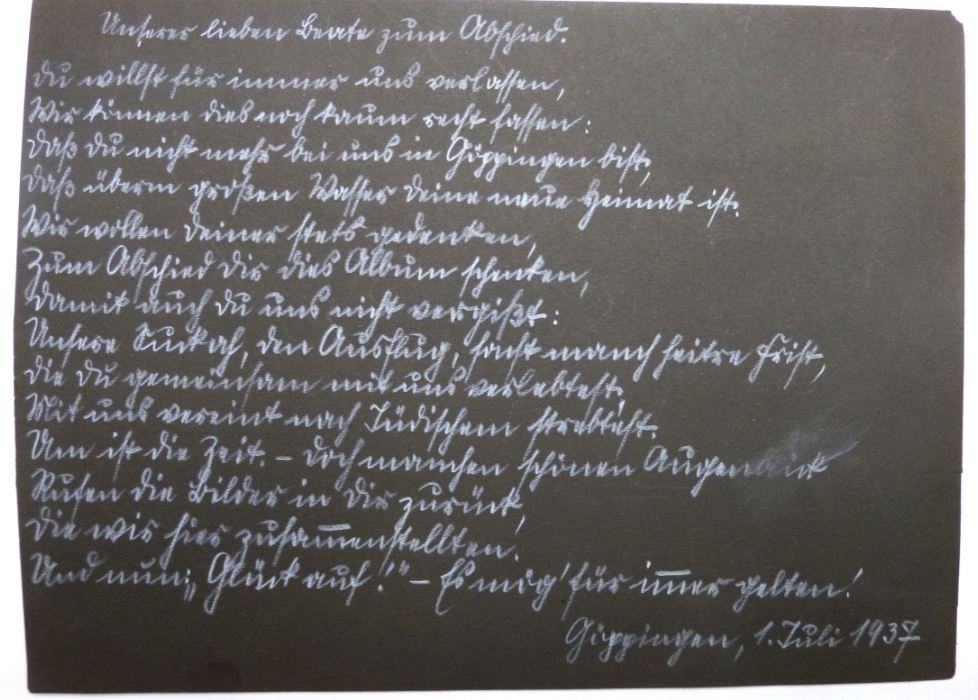 Unserer lieben Beate zum Abschied.
Du willst für immer uns verlassen,
Wir können dies noch kaum recht fassen:
Daß Du nicht mehr bei uns in Göppingen bist,
Daß überm großen Wasser Deine neue Heimat ist.
Wir wollen Deiner stets gedenken,
Zum Abschied Dir dies Album schenken,
Damit auch Du uns nicht vergißt:
Unsere Suckah, den Ausflug, sonst manch heitre Frist,
Die Du gemeinsam mit uns verlebtest.
Mit uns vereint nach Jüdischem strebtest.
Um ist die Zeit. – Doch manchen schönen Augenblick
Rufen die Bilder in Dir zurück,
Die wir hier zusam̅enstellten.
Und nun: „Glück auf!" – Es mög' für im̅er gelten!
Göppingen, 1. Juli 1937